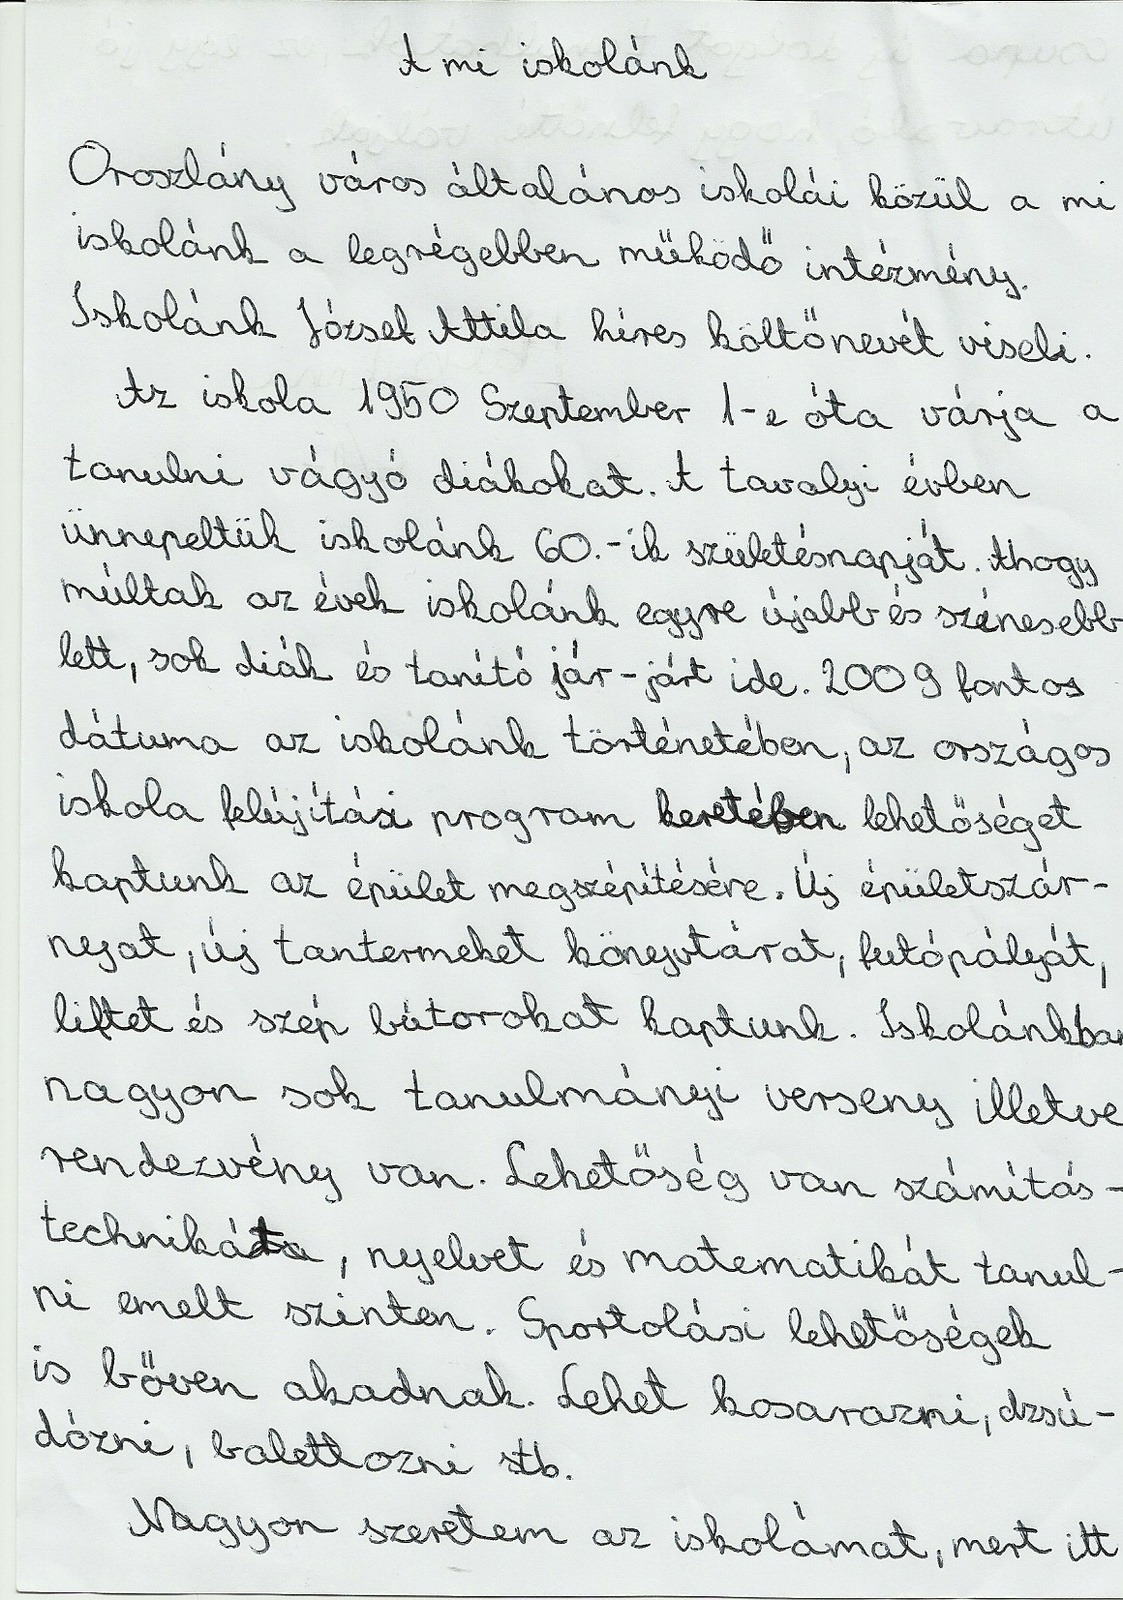 A mi iskolánk
Oroszlány város általános iskolái közül a mi
iskolánk a legrégebben működő intézmény.
Iskolánk József Attila híres költőnevét viseli.
Az iskola 1950 Szeptember 1-e óta várja a
tanulni vágyó diákokat. A tavalyi évben
ünnepeltük iskolánk 60.-ik születésnapját. Ahogy
múltak az évek iskolánk egyre újabb és színesebb
lett, sok diák és tanító jár-járt ide. 2009 fontos
dátuma az iskolánk történetében, az országos
iskola felújítási program keretében lehetőséget
kaptunk az épület megszépítésére. Új épületszár-
nyat, új tantermeket könyvtárat, futópályát,
liftet és szép bútorokat kaptunk. Iskolánkban
nagyon sok tanulmányi verseny illetve
rendezvény van. Lehetőség van számítás-
technikát, nyelvet és matematikát tanul-
ni emelt szinten. Sportolási lehetőségek
is bőven akadnak. Lehet kosarazni, dzsú-
dózni, balettozni stb.
Nagyon szeretem az iskolámat, mert itt